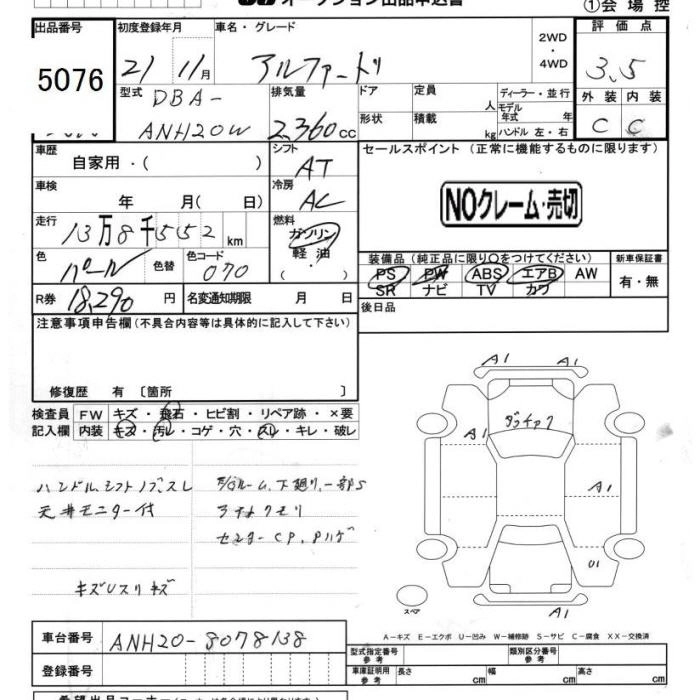 オークション出品申込書 ①会場控
出品番号 初度登録年月 車名・グレード 2WD 評価点
5076 21 11月 アルファード ・4WD 3.5
型式 排気量 ドア 定員 人 ディーラー・並行 外装 内装
DBA- モデル年式 年
ANH20W 2,360cc 形状 積載 kg ハンドル 左・右 C C
車歴 シフト セールスポイント(正常に機能するものに限ります)
自家用・( ) AT
車検 冷房 NOクレーム・売切
年 月( 日) AC
走行 13万8千552km 燃料
ガソリン
色 パール 色替 色コード 070 軽油 装備品(純正品に限り○をつけてください) 新車保証書
・( ) PS PW ABS エアB AW 有・無
R券 18,290円 名変通知期限 月 日 SR ナビ TV カワ
注意事項申告欄(不具合内容等は具体的に記入して下さい) 後日品
修復歴 有 〔箇所 〕
検査員 FW キズ・飛石・ヒビ割・リペア跡・×要
記入欄 内装 キズ・汚レ・コゲ・穴・スレ・キレ・破レ
A1 A1
A1
A1
U1
A1
スペア
ハンドル、シフトノブ、スレ ルーム、下廻り、一部S
天井モニター付
キズUスリキズ
A-キズ E-エクボ U-凹み W-補修跡 S-サビ C-腐食 XX-交換済
車台番号 ANH20-8078138 型式指定番号 参考 類別区分番号 参考
登録番号 車庫証明用 参考 長さ cm 幅 cm 高さ cm